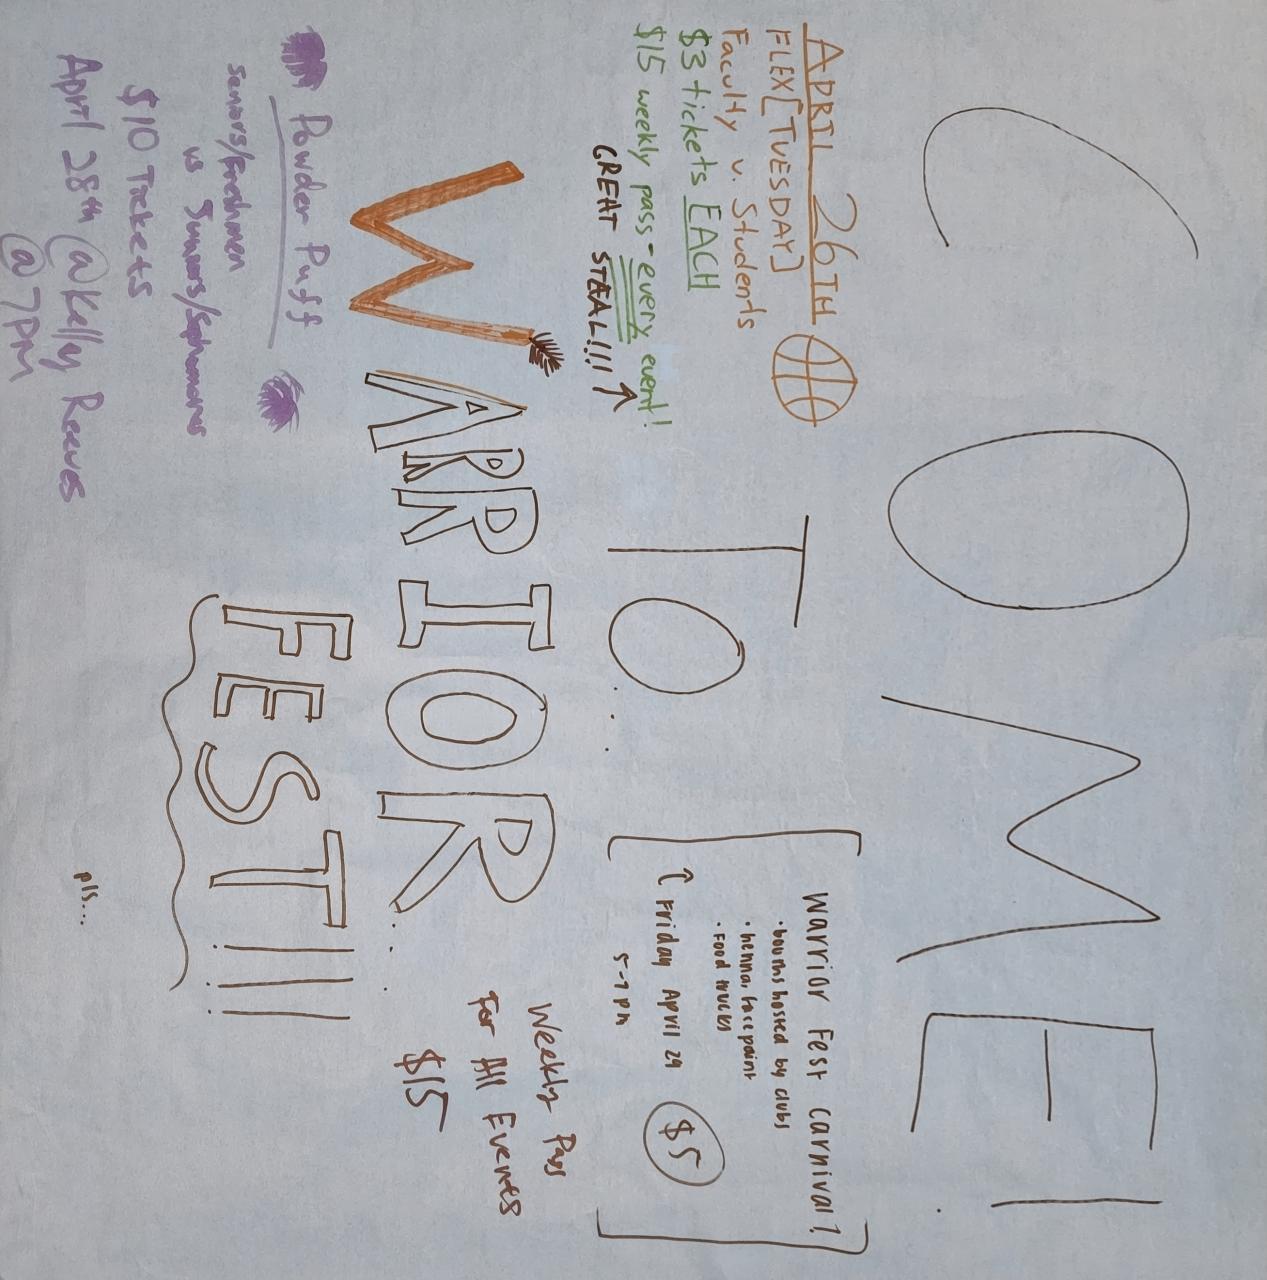 COME!
APRIL 26TH
FLEX [TUESDAY]
Faculty v. Students
$3 tickets EACH
$15 weekly pass - every event!
GREAT STEAL!!! ↑
TO...
Warrior Fest carnival!
• booths hosted by clubs
• henna, face paint
• Food trucks
↑ Friday April 29
5-7 pm
$5
WARRIOR...
Weekly Pass
For All Events
$15
FEST!!!
Powder Puff
seniors/freshmen
vs Juniors/Sophomores
$10 Tickets
April 28th @Kelly Reeves
@ 7PM
pls...